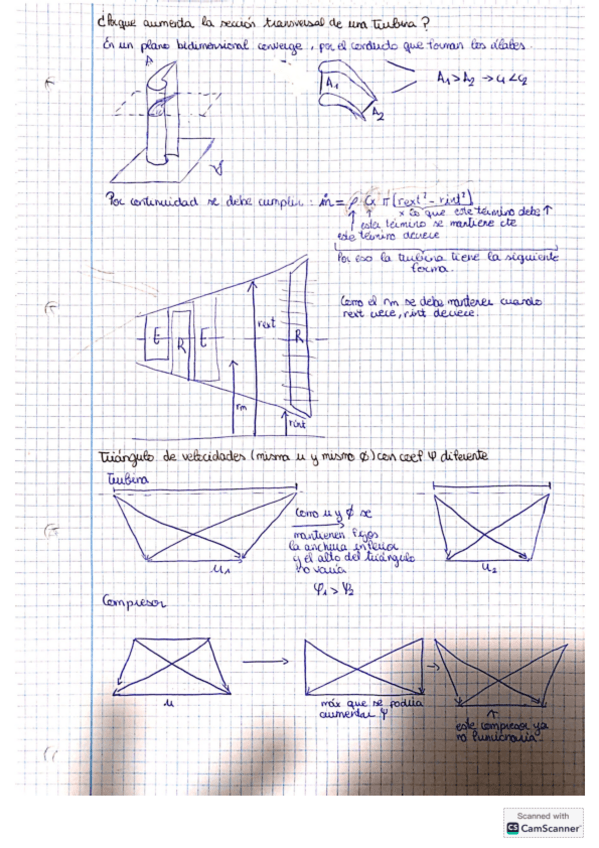 ¿Porque aumenta la sección transversal de una turbina?
En un plano bidimensional converge, por el conducto que forman los álabes.
A1
A2
A1 > A2 → c1 < c2
Por continuidad se debe cumplir: ṁ = ρ Cx π [rext² - rint²]
x lo que este término debe ↑
este término se mantiene cte
este término decrece
Por eso la turbina tiene la siguiente
forma.
Como el rm se debe mantener cuando
rext crece, rint decrece.
E
R
E
rext
R
rm
rint
Triángulo de velocidades (misma u y mismo ϕ) con coef ψ diferente
Turbina
Como u y ϕ se
mantienen fijos
la anchura inferior
y el alto del triángulo
no varía
ψ1 > ψ2
u1
u2
Compresor
u
máx que se podría
aumentar ψ
este compresor ya
no funcionaría.
Scanned with
CS CamScanner